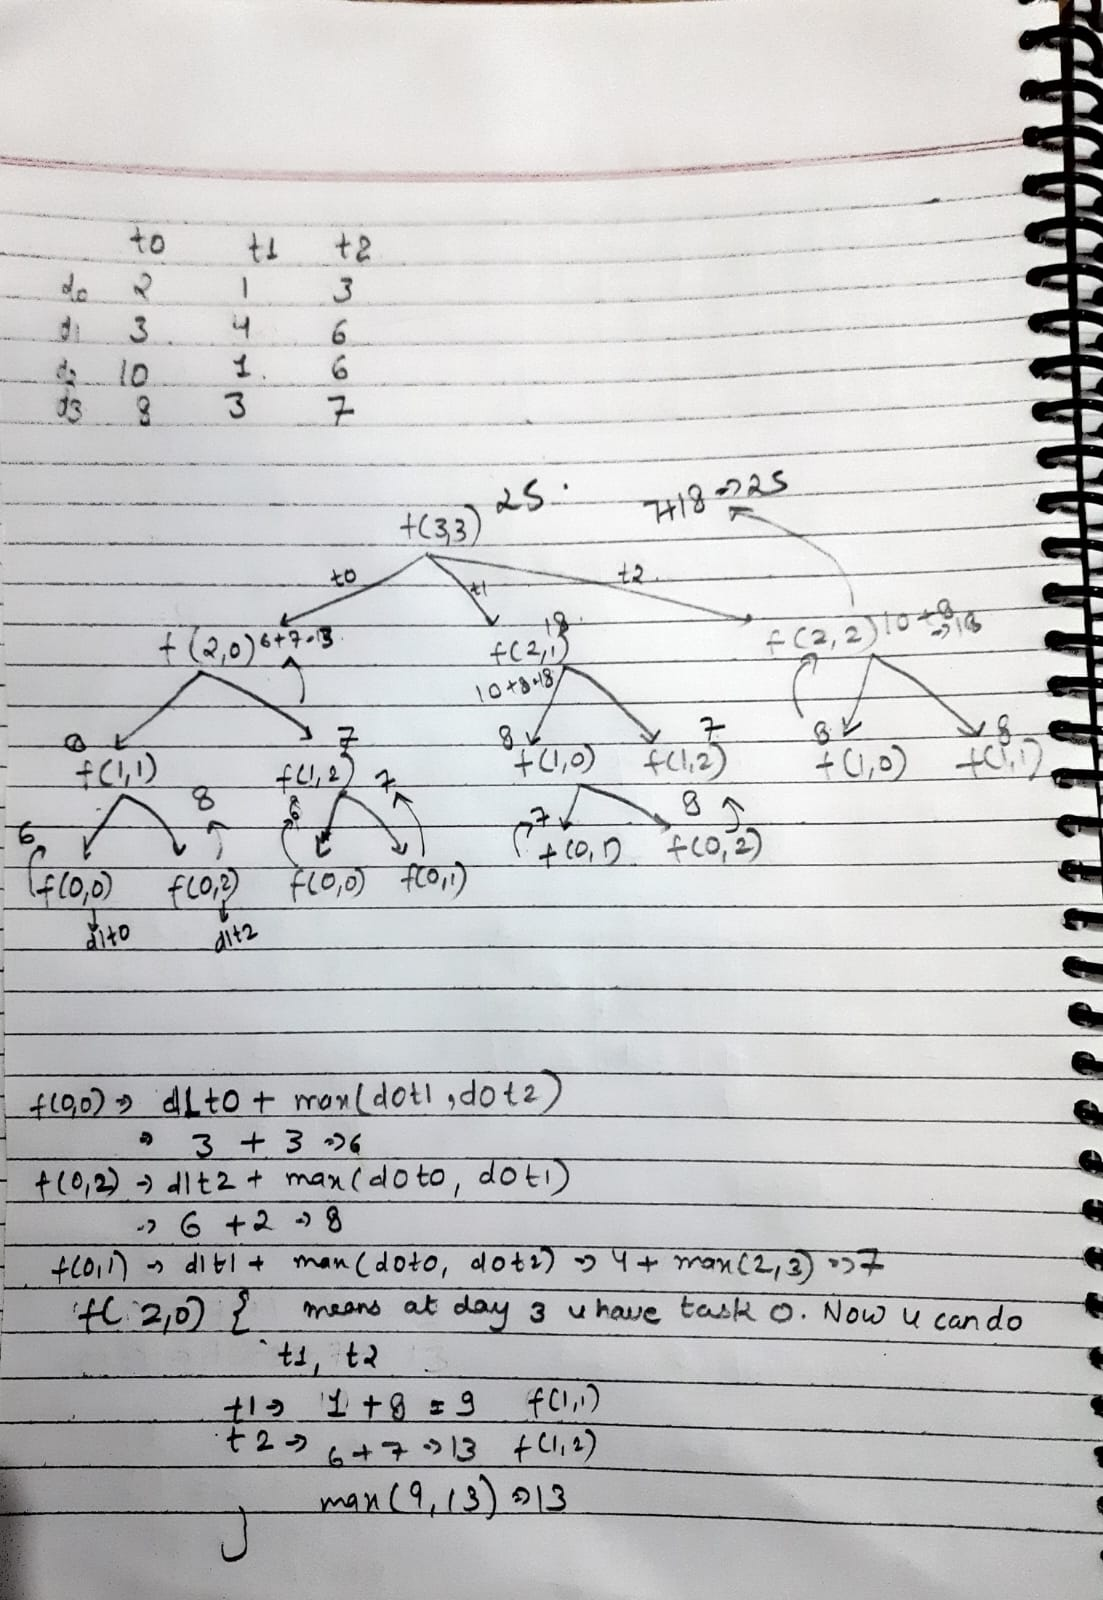 t0 t1 t2
d0 2 1 3
d1 3 4 6
d2 10 1 6
d3 8 3 7
f(3,3) 25. 7+18 => 25
t0 t1 t2
f(2,0) 6+7=13 f(2,1) 18 f(2,2) 10+8 => 18
10+8=18
8 7 8 7 8 8
f(1,1) f(1,2) f(1,0) f(1,2) f(1,0) f(1,1)
6 8 6 7 7 8
f(0,0) f(0,2) f(0,0) f(0,1) f(0,1) f(0,2)
d1t0 d1t2
f(0,0) => d1t0 + max(d0t1, d0t2)
=> 3 + 3 => 6
f(0,2) -> d1t2 + max(d0t0, d0t1)
-> 6 + 2 => 8
f(0,1) -> d1t1 + max(d0t0, d0t2) => 4 + max(2,3) => 7
f(2,0) { means at day 3 u have task 0. Now u can do
t1, t2
t1 => 1 + 8 = 9 f(1,1)
t2 -> 6 + 7 => 13 f(1,2)
max(9,13) => 13
}